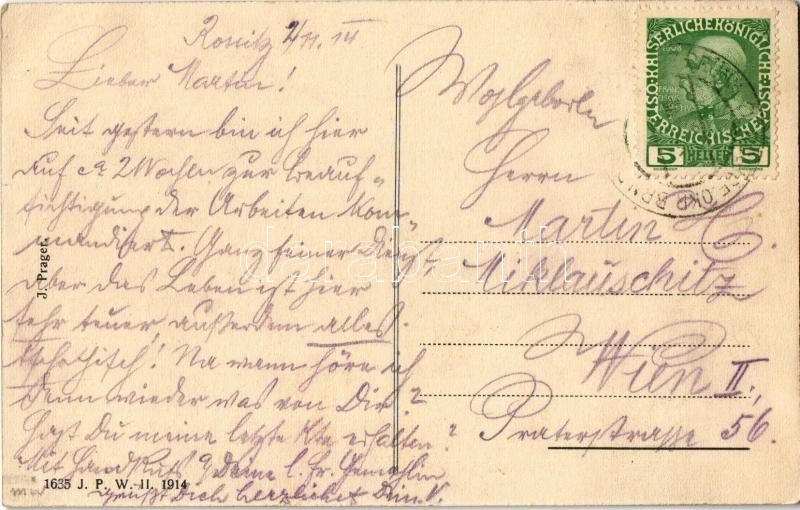 Rossitz 2/11. 14
Lieber Martin!
Seit gestern bin ich hier
auf ca 2 Wochen zur Beauf-
sichtigung der Arbeiten kom-
mandiert. Ganz feiner Dienst,
aber das Leben ist hier
sehr teuer, außerdem alles
tschechisch! Na wann höre ich
denn wieder was von Dir?
Hast Du meine letzte Kte erhalten?
Mit Handkuß a. Deine l. Fr. Gemahlin
grüßt Dich herzlichst Dein
J. Prager.
1635 J. P. W. II. 1914
Wohlgeboren
Herrn
Martin
Miklauschitz
Wien II,
Praterstraße 56.
KAISERLICHE KÖNIGLICHE
ÖSTERREICHISCHE
1908
5 HELLER 5
darabanth